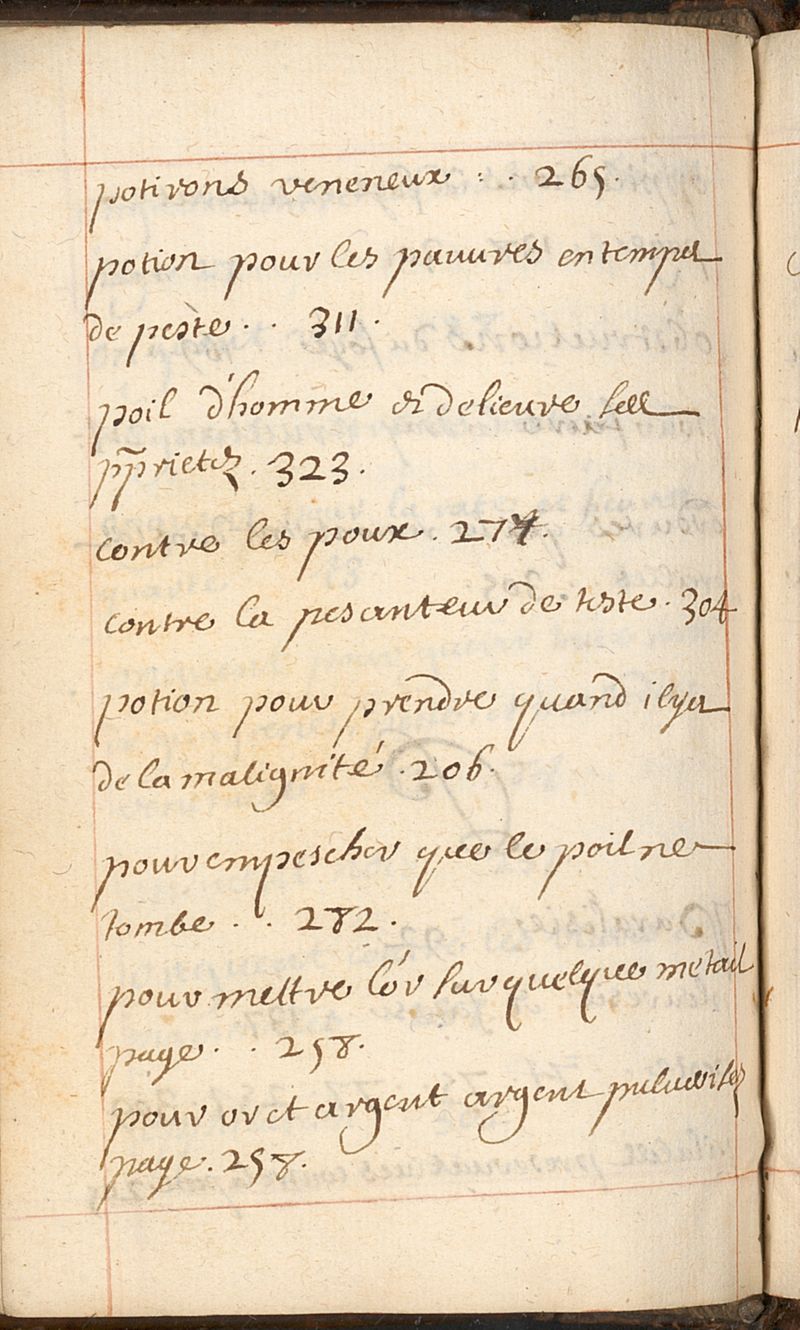 potirons veneneux : . 265.
potion pour les pauures en temps
de peste . . 311.
poil d'homme et de lieure sell
pprietez . 323.
contre les poux . 274.
contre la pesanteur de teste . 304
potion pour prendre quand il ya
de la malignité . 206.
pour empescher que le poil ne
tombe . . 282.
pour mettre l'or sur quelque metail
page . . 258.
pour or et argent argent puluerisez
page . 258.